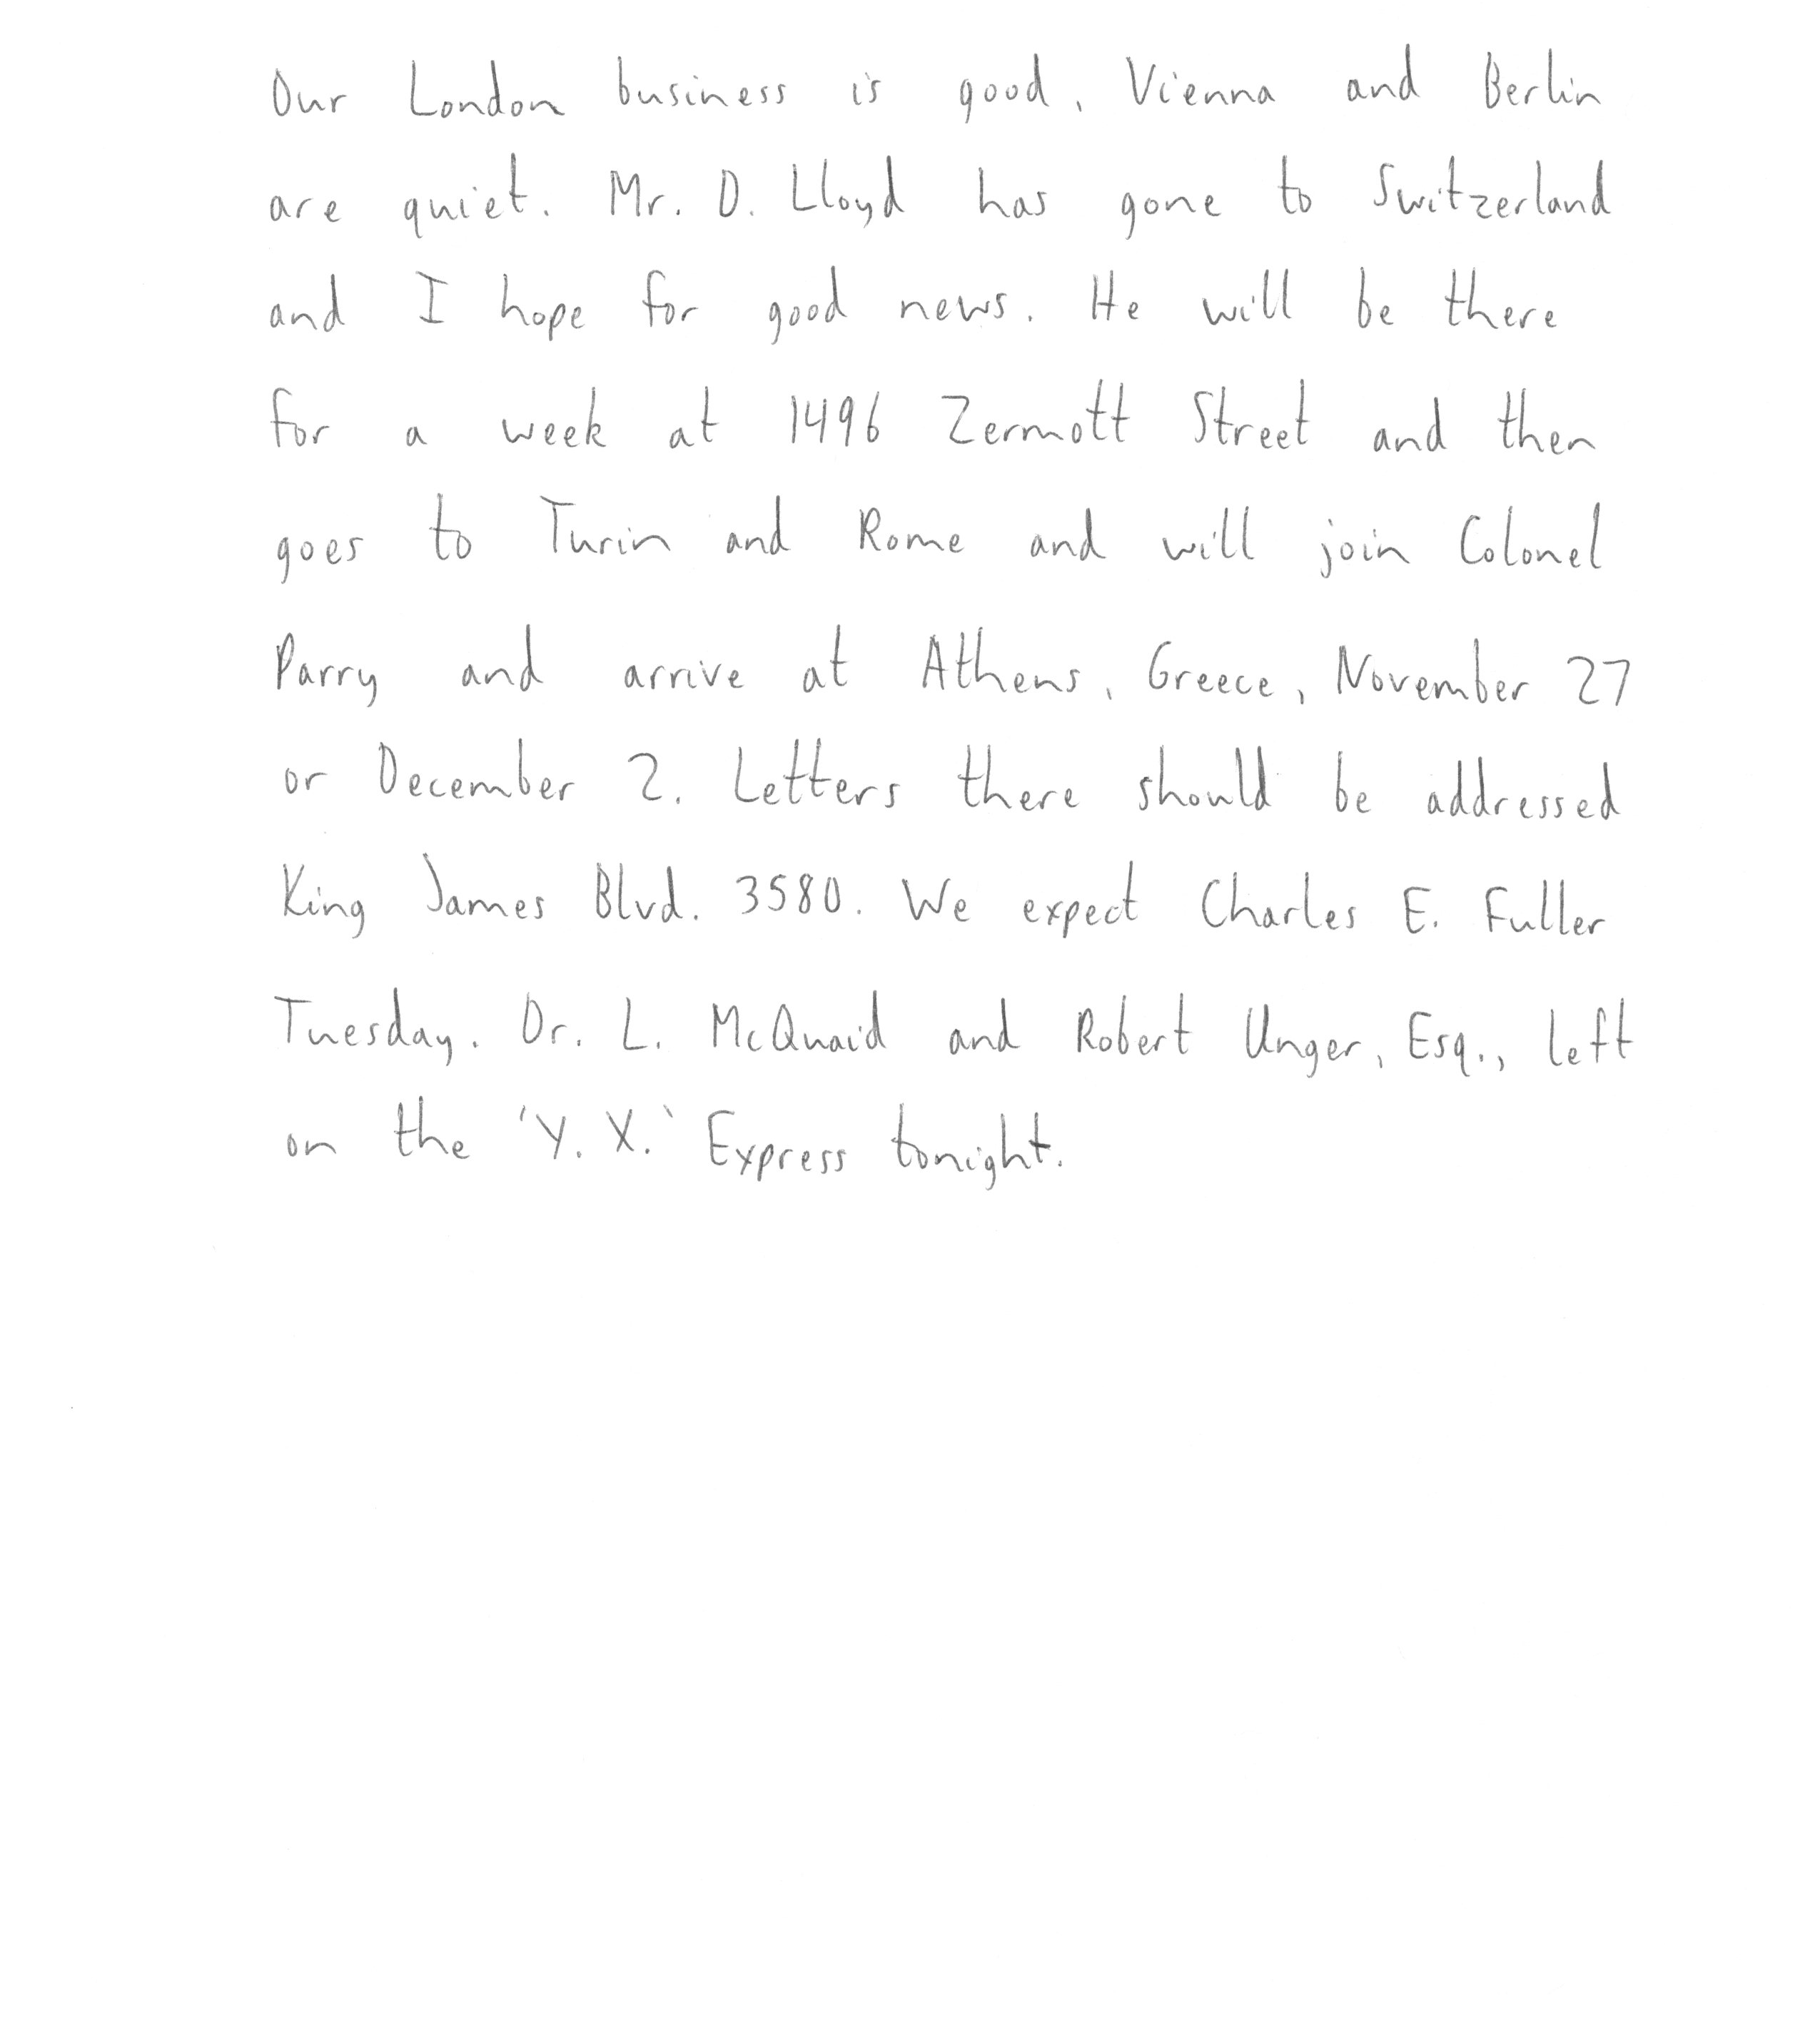 Our London business is good, Vienna and Berlin
are quiet. Mr. D. Lloyd has gone to Switzerland
and I hope for good news. He will be there
for a week at 1496 Zermott Street and then
goes to Turin and Rome and will join Colonel
Parry and arrive at Athens, Greece, November 27
or December 2. Letters there should be addressed
King James Blvd. 3580. We expect Charles E. Fuller
Tuesday. Dr. L. McQuaid and Robert Unger, Esq., left
on the 'Y. X.' Express tonight.